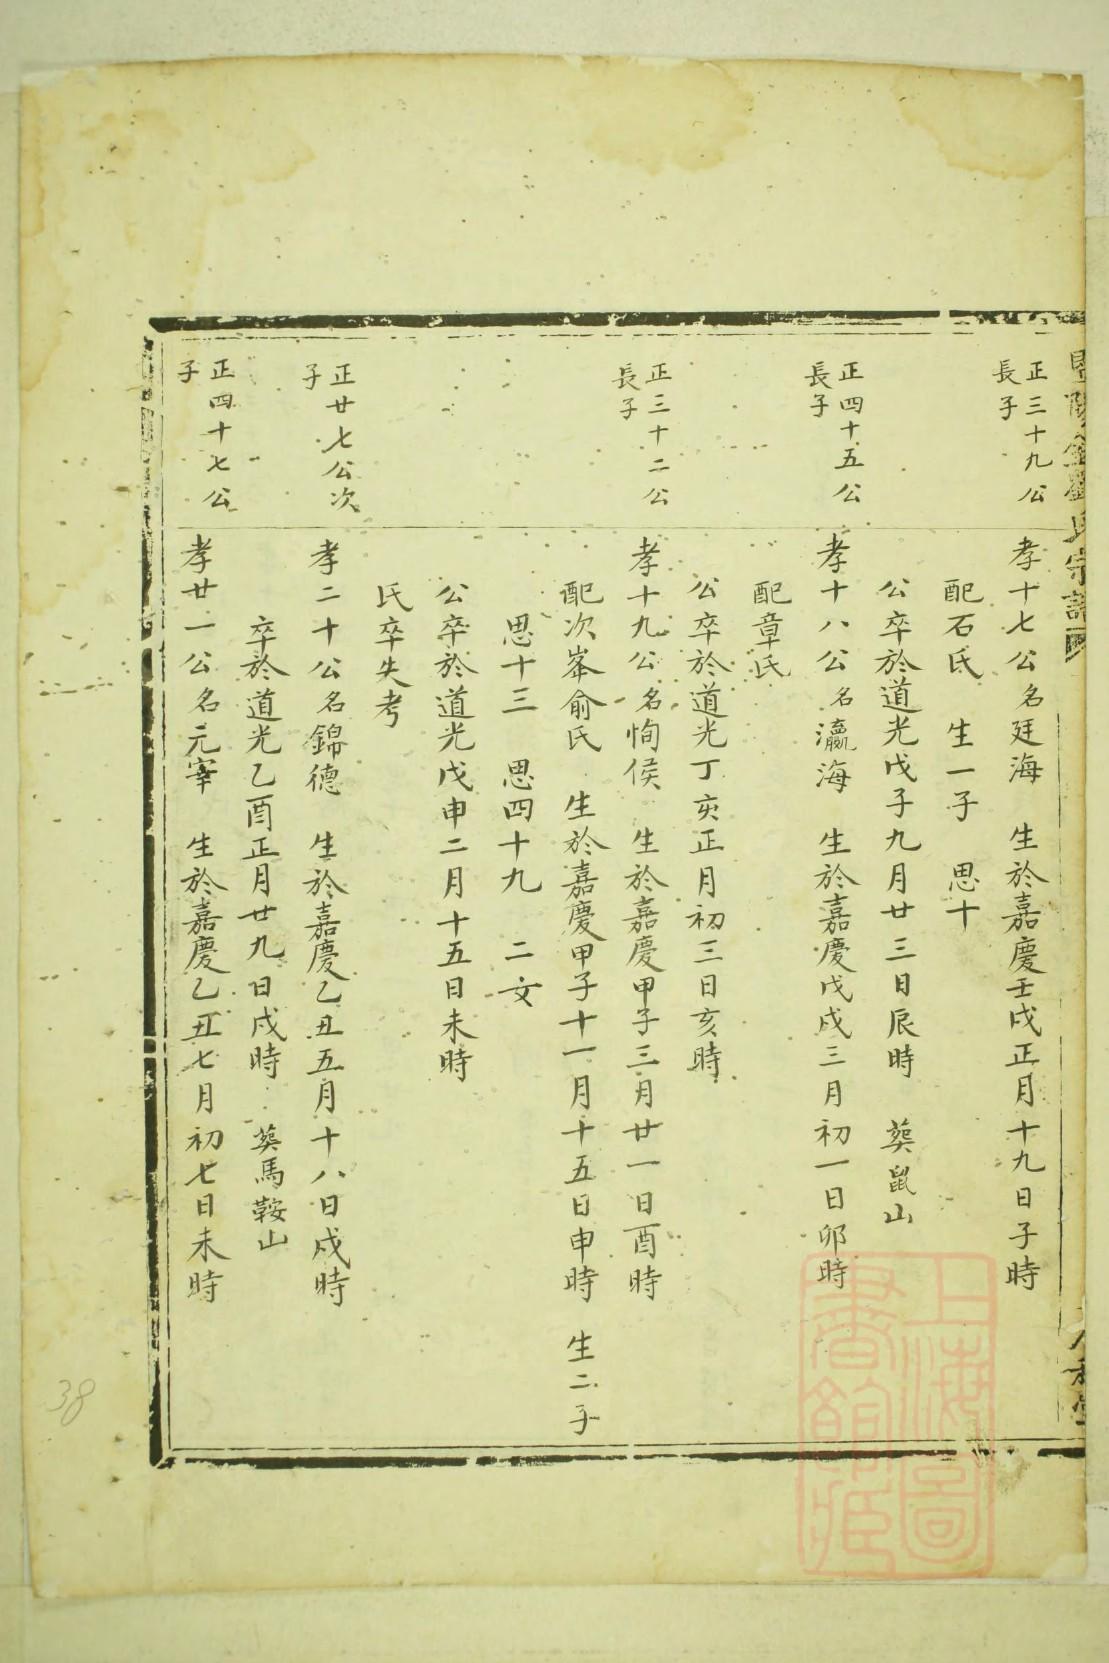 正三十九公
長子
孝十七公名廷海 生於嘉慶壬戌正月十九日子時
配石氏 生一子 思十
公卒於道光戊子九月廿三日辰時 葬鼠山
正四十五公
長子
孝十八公名瀛海 生於嘉慶戊戌三月初一日卯時
配章氏
公卒於道光丁亥正月初三日亥時
正三十二公
長子
孝十九公名恂侯 生於嘉慶甲子三月廿一日酉時
配次峯俞氏 生於嘉慶甲子十一月十五日申時 生二子
思十三 思四十九 二女
公卒於道光戊申二月十五日未時
氏卒失考
正廿七公次
子
孝二十公名錦德 生於嘉慶乙丑五月十八日戌時
卒於道光乙酉正月廿九日戌時 葬馬鞍山
正四十七公
子
孝廿一公名元宰 生於嘉慶乙丑七月初七日未時
38
上海圖
書館藏